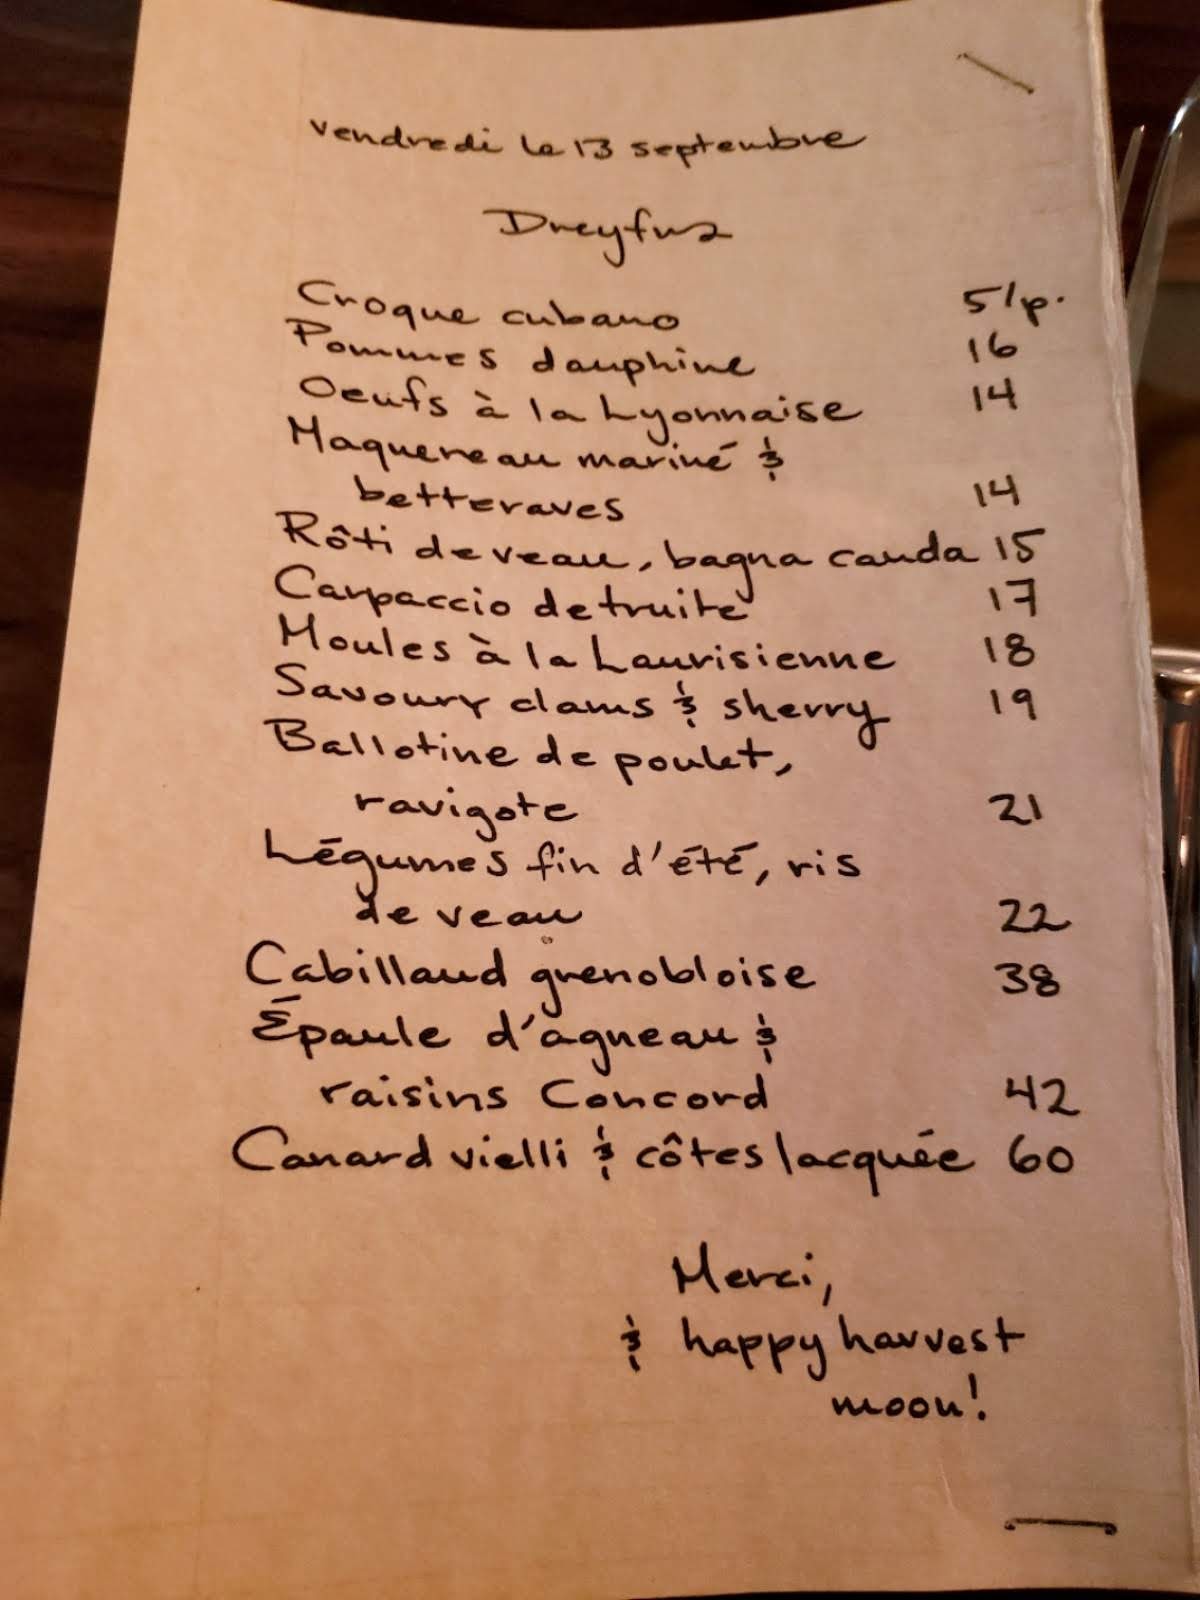 vendredi le 13 septembre
Dreyfus
Croque cubano 5/p.
Pommes dauphine 16
Oeufs à la Lyonnaise 14
Maquereau mariné &
betteraves 14
Rôti de veau, bagna cauda 15
Carpaccio de truite 17
Moules à la Laurisienne 18
Savoury clams & sherry 19
Ballotine de poulet,
ravigote 21
Légumes fin d'été, ris
de veau 22
Cabillaud grenobloise 38
Épaule d'agneau &
raisins Concord 42
Canard vielli & côtes lacquée 60
Merci,
& happy harvest
moon!